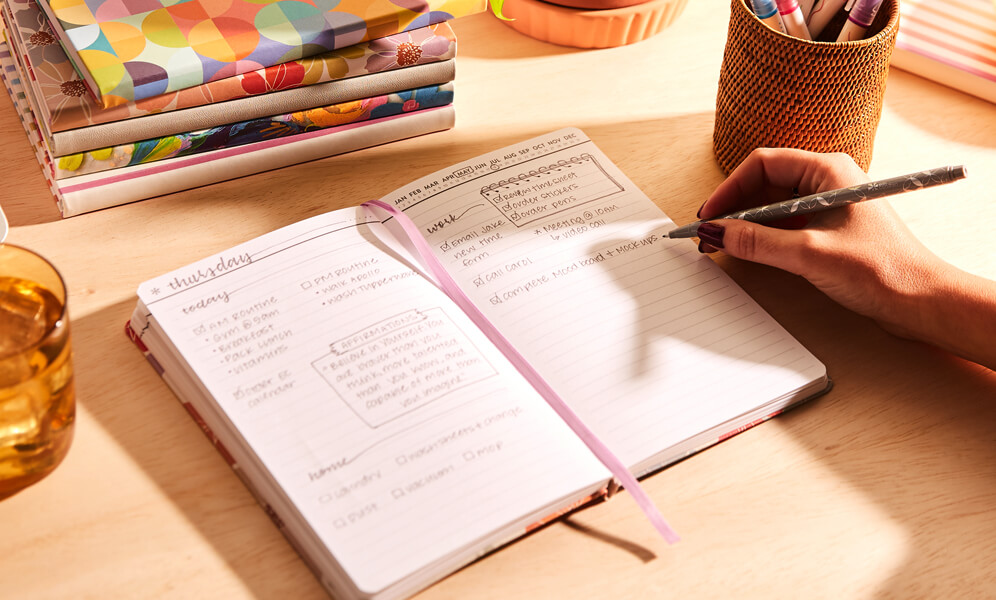 * thursday
today
☑ AM ROUTINE
• GYM @ 9am
• Breakfast
• Pack Lunch
• Vitamins
☑ order EC
calendar
☐ PM ROUTINE
• Walk Apollo
• Wash Tupperware
AFFIRMATIONS
"Believe in yourself. You
are braver than you
think, more talented
than you know, and
capable of more than
you imagine."
home
☐ Laundry
☐ wash sheets + change
☐ Dust
☐ vacuum
☐ mop
JAN FEB MAR APR MAY JUN JUL AUG SEP OCT NOV DEC
work
☑ Review timesheet
☑ order stickers
☑ order pens
☑ Email Jake
new time
form
* Meeting @ 10AM
↳ video call
☑ call Carol
☑ complete Mood board + Mock-ups